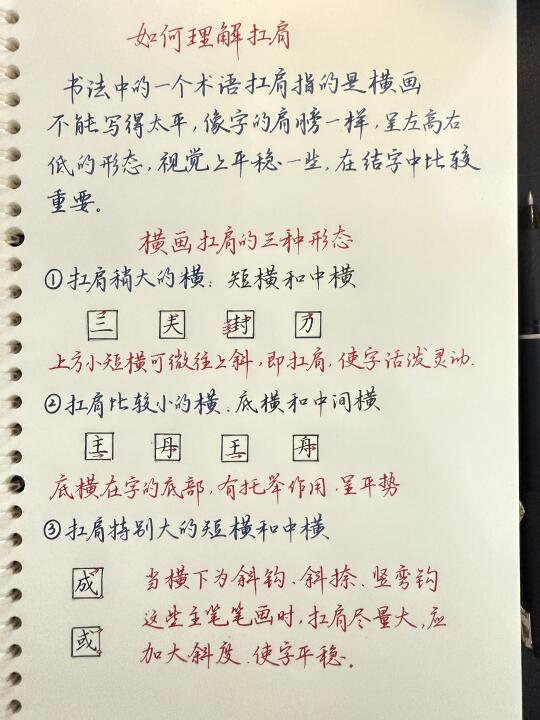 如何理解扛肩
书法中的一个术语扛肩指的是横画
不能写得太平，像字的肩膀一样，呈左高右
低的形态，视觉上平稳一些，在结字中比较
重要。
横画扛肩的三种形态
①扛肩稍大的横：短横和中横
三 夫 封 方
上方小短横可微往上斜，即扛肩，使字活泼灵动．
②扛肩比较小的横、底横和中间横
主 丹 王 舟
底横在字的底部，有托举作用．呈平势
③扛肩特别大的短横和中横
成
当横下为斜钩、斜捺、竖弯钩
这些主笔笔画时，扛肩尽量大，应
或
加大斜度．使字平稳．